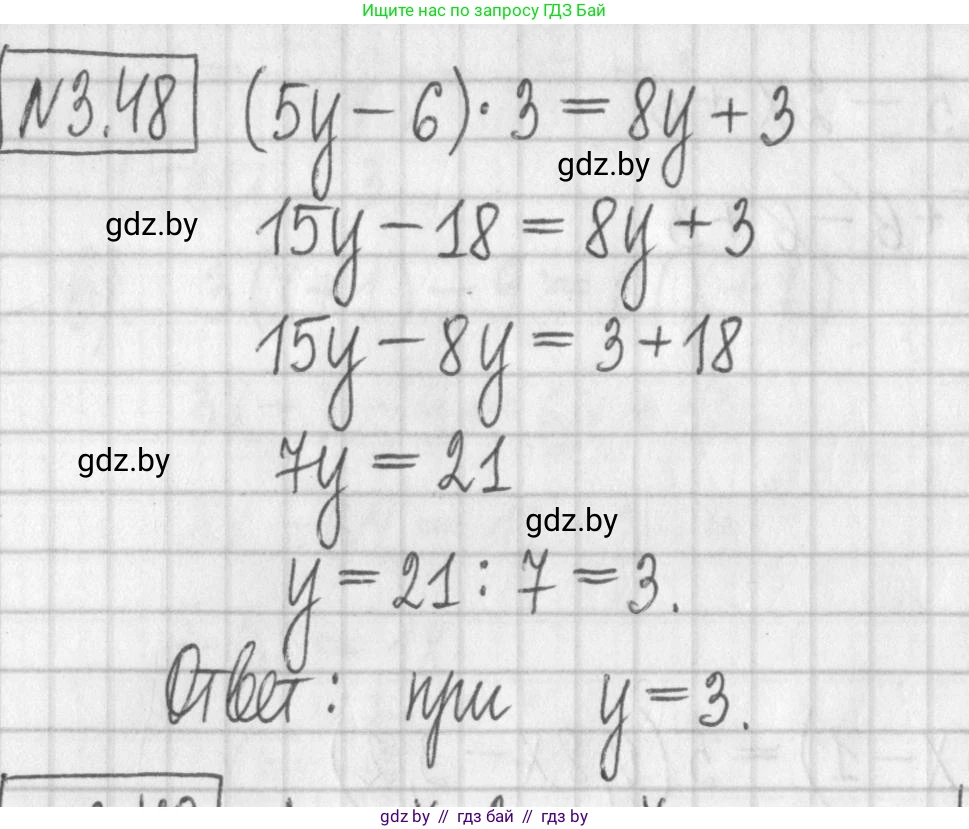 Ищите нас по запросу ГДЗ Бай
N3.48 (5y - 6) · 3 = 8y + 3
gdz.by
gdz.by 15y - 18 = 8y + 3
15y - 8y = 3 + 18
gdz.by 7y = 21
gdz.by
y = 21 : 7 = 3.
Ответ: при y = 3.
gdz.by // гдз бай // gdz.by